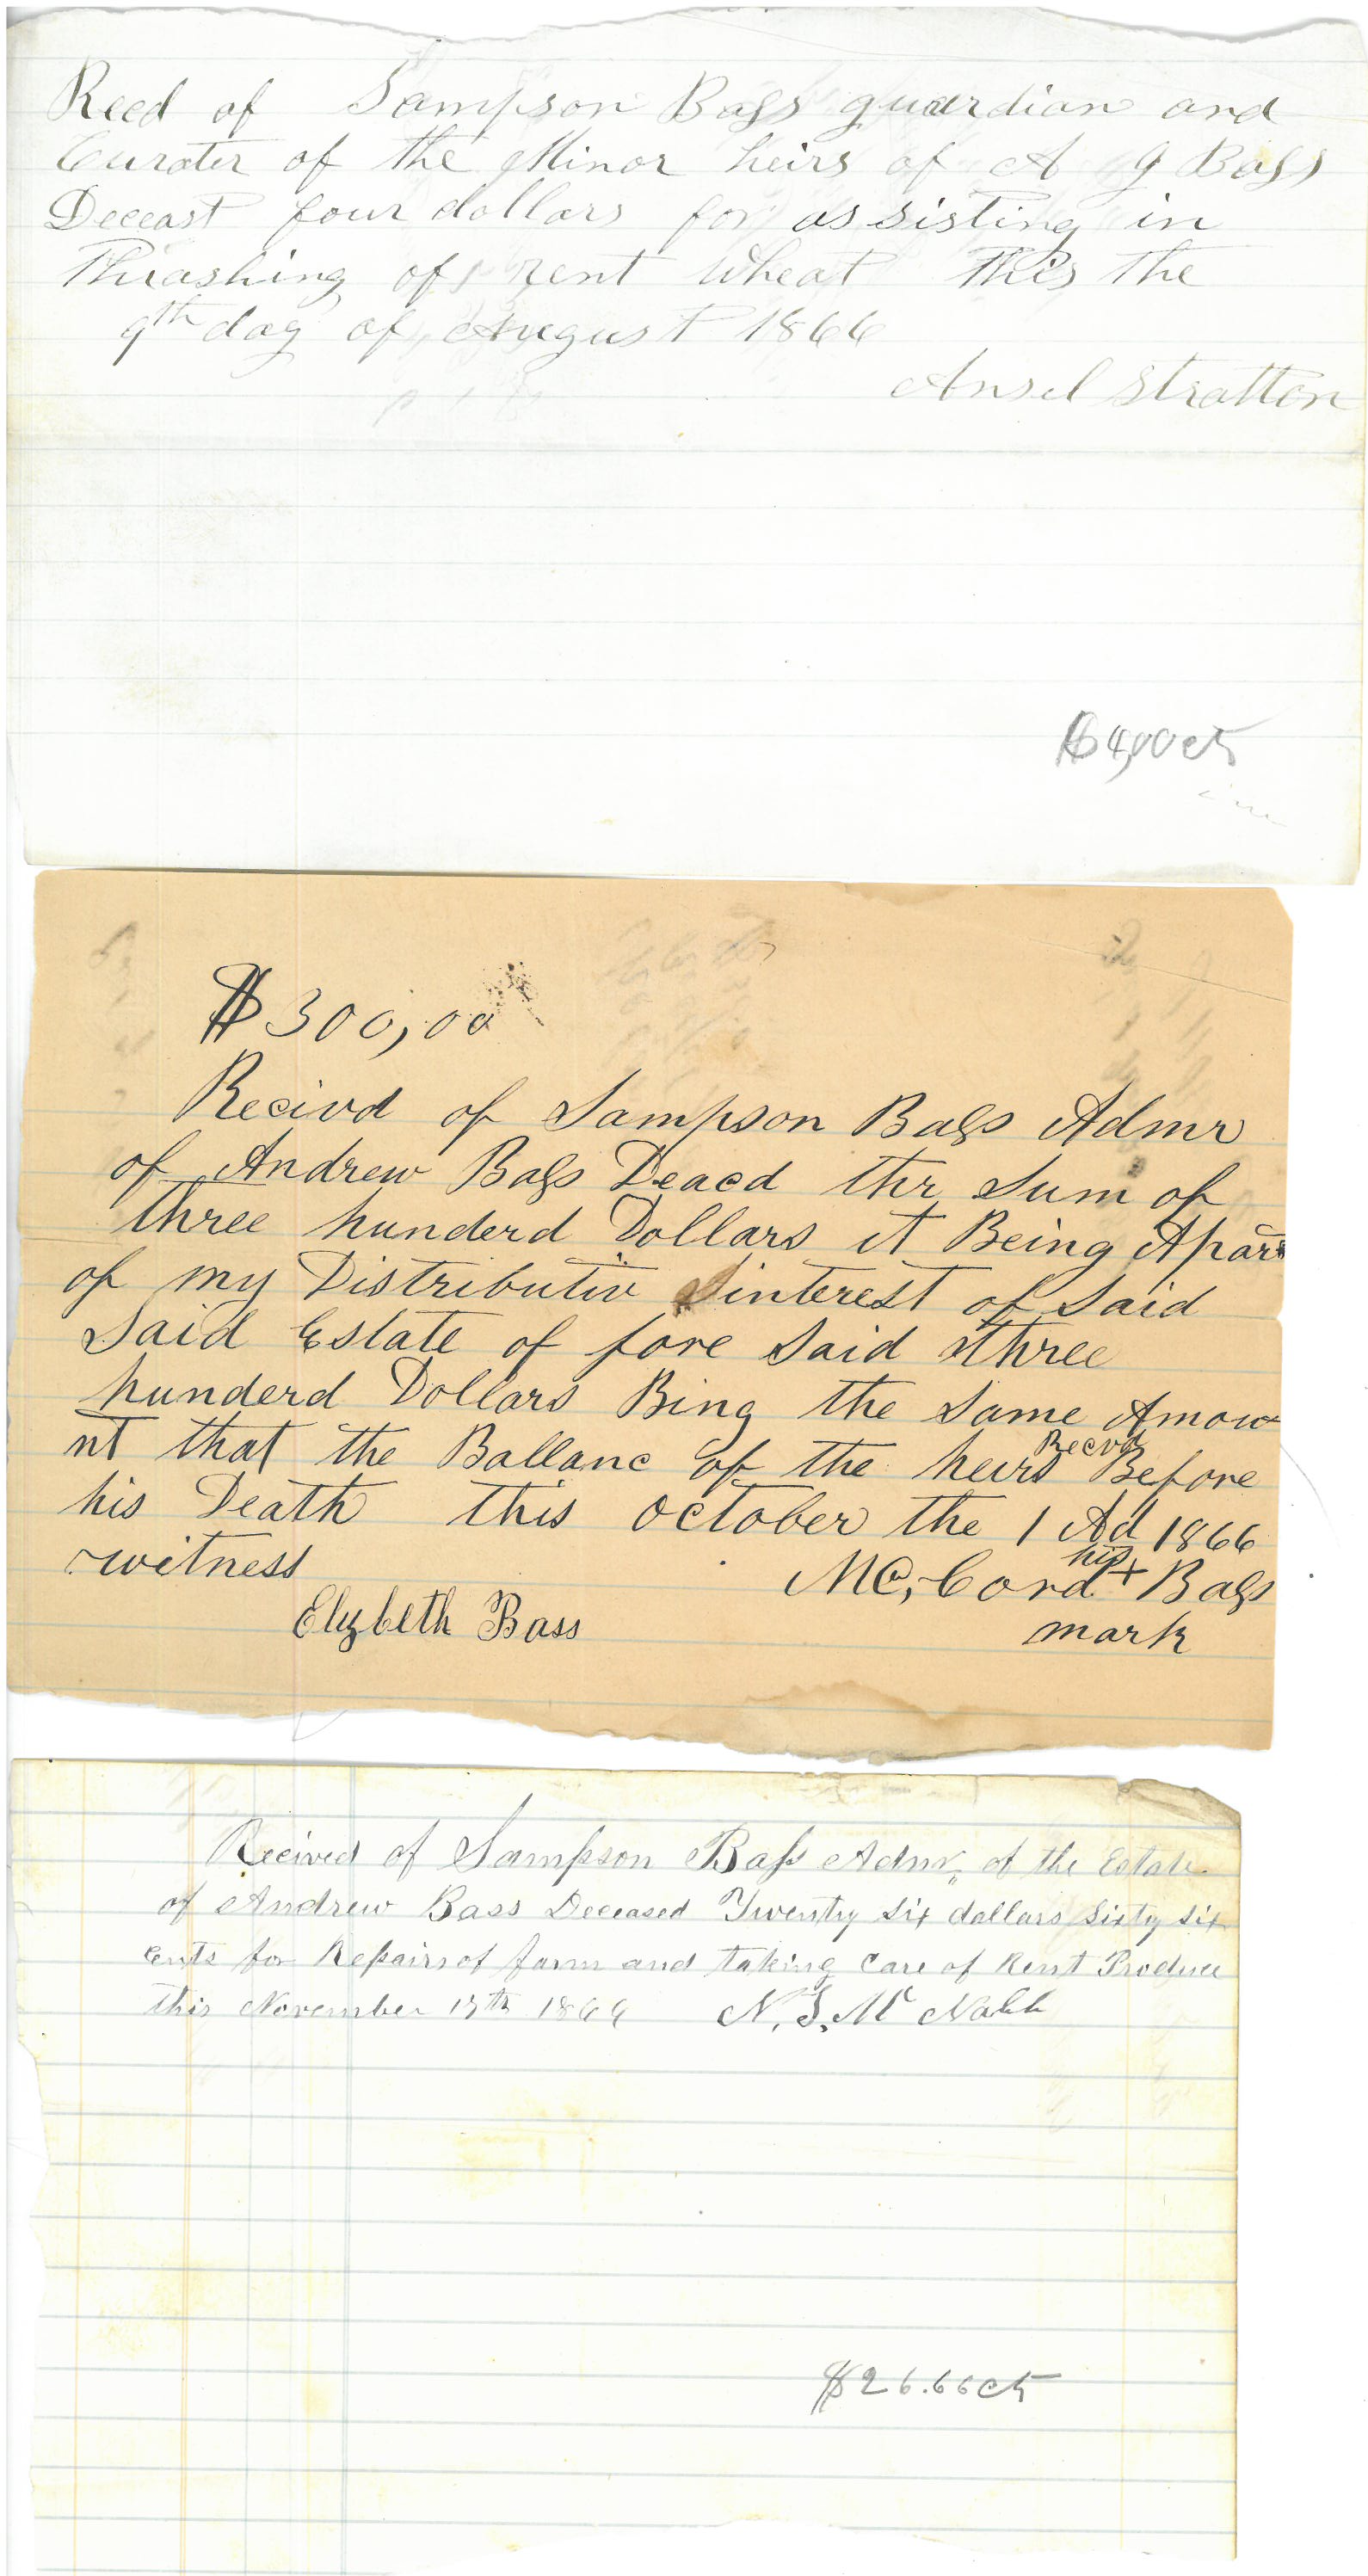 Recd of Sampson Bass guardian and
Curater of the Minor heirs of A G Bass
Deceast four dollars for assisting in
Thrashing of rent wheat This the
9th day of August 1866
Ansel Stratton
$4,00 cts
$300,00
Recivd of Sampson Bass Admr
of Andrew Bass Deacd thr Sum of
three hunderd Dollars it Being Apart
of my Distributiv interest of Said
Said Estate of fore Said three
hunderd Dollars Bing the Same Amow
nt that the Ballanc of the heirs Recvd Before
his Death this October the 1 Ad 1866
witness MC,Cord his + Bass
Elyzbeth Bass mark
Recived of Sampson Bass Admr, of the Estate
of Andrew Bass Deceased Twenty Six dollars Sixty Six
cents for Repairs of farm and taking Care of Rent Produce
this November 1866 N. S. Mc Nabb
$26.66 cts